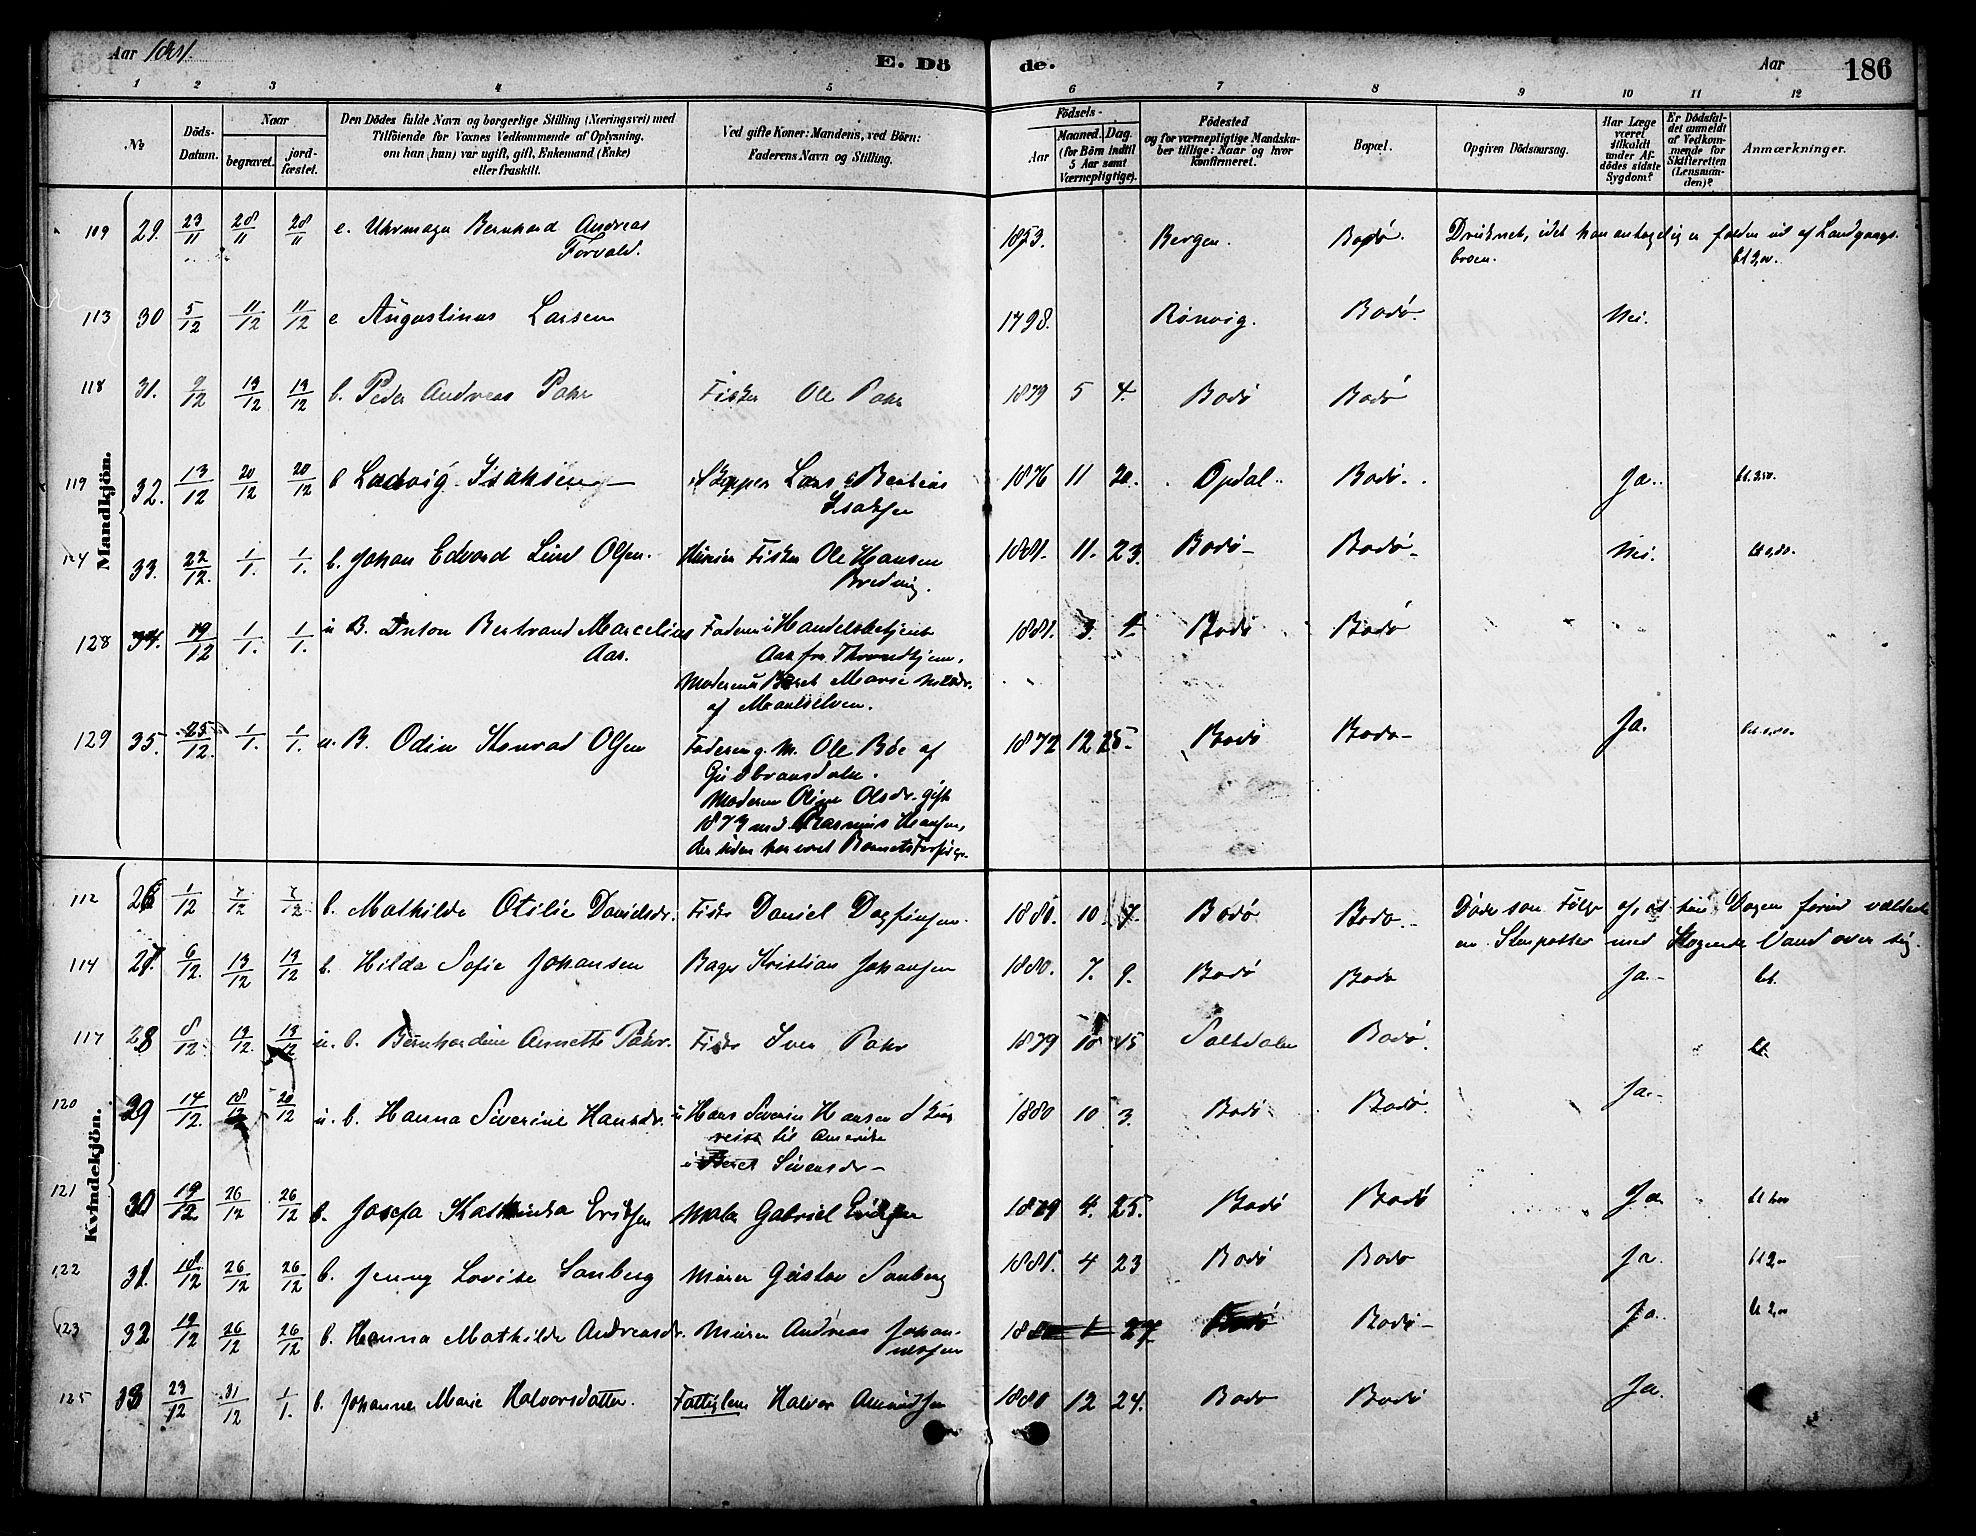 Aar 1881.
E. Dö
de.
Aar
186
1 2 3 4 5 6 7 8 9 10 11 12
No
Döds-Datum.
Naar
begravet.
jordfæstet.
Den Dödes fulde Navn og borgerlige Stilling (Næringsvei) med
Tilföiende for Voxnes Vedkommende af Oplysning,
om han (hun) var ugift, gift, Enkemand (Enke)
eller fraskilt.
Ved gifte Koner: Mandens, ved Börn:
Faderens Navn og Stilling.
Födsels-
Aar
Maaned. Dag.
(for Börn indtil
5 Aar samt
Værnepligtige).
Födested
og for værnepligtige Mandska-
ber tillige: Naar og hvor
konfirmeret.
Bopæl.
Opgiven Dödsaarsag.
Har Læge
været
tilkaldt
under Af-
dödes sidste
Sygdom?
Er Dödsfal-
det anmeldt
af Vedkom-
mende for
Skifteretten
(Lensman-
den)?
Anmærkninger.
Mandkjön.
109 29. 23/11 28/11 28/11 e. Uhrmager Bernhard Andreas 1853. Bergen. Bodø. Druknet, idet han antagelig er falden ud af Landgangs-
Torvald. broen. bt 2,00.
113 30 5/12 11/12 11/12 e Augustinus Larsen 1798. Rønvig. Bodø. Nei.
118 31. 9/12 13/12 13/12 b. Peder Andreas Pahr Fisker Ole Pahr 1879 5 4. Bodø Bodø
119 32. 13/12 20/12 20/12 b Ludvig Isaksen Skipper Lars Bertius 1876 11 20. Opdal Bodø. Ja. bt. 2,50.
Isaksen
124 33. 22/12. 1/1. 1/1. b. Johan Edvard Lind Olsen. Fisker Ole Hansen 1881. 11. 23. Bodø Bodø Nei.
Bredvig.
128 34. 19/12 1/1. 1/1. u B. Anton Bertrand Marcelius Faderen Handelsbetjent 1881. 3. 1. Bodø Bodø
Aas. Aas fra Throndhjem.
Moderen Beret Marie
af Maalselven.
129 35. 25/12. 1/1. 1/1. u. B. Odin Konrad Olsen Faderen g. M. Ole Bøe af 1872 12 25. Bodø Bodø Ja.
Gudbransdalen.
Moderen Oline Olsdr. gift
1879 med Rasmus Hansen,
der siden har været Barnets Forsørger.
Kvindekjön.
112 26 1/12 7/12 7/12 b. Mathilde Otilie Davidsdr. Fisker Daniel Dagfinsen 1880. 10 7. Bodø Bodø Døde som Følge af, at hun Dagen forud væltede
en Stenpotte med Kogende Vand over sig.
114 27. 6/12. 13/12 13/12 b. Hilda Sofie Johansen Bager Kristian Johansen 1880. 7. 9. Bodø Bodø Ja. bt.
117 28 8/12. 13/12. 13/12 u. b. Bernhardine Annette Pahr. Fisker Iver Pahr 1879 10 15 Saltdalen Bodø. bt.
120 29 14/12. 18/12 20/12 u. b. Hanna Siverine Hansdr. u Hans Severin Hansen
reist til Amerika 1880 10 3. Bodø Bodø. Ja.
u Beret Sivensdr
121 30 19/12 26/12 26/12 b. Josefa Kathinka Eriksen Maler Gabriel Eriksen 1879 4. 25. Bodø Bodø Ja
122 31. 18/12 26/12 26/12 b. Jenny Lovise Sanberg Murer Gustav Sanberg 1881. 4 23 Bodø Bodø Ja. bt 2,00
123 32 19/12 26/12 26/12 b. Hanna Mathilde Andreasdr. Murer Andreas Johan-
nessen 27. Bodø Bodø Ja. bt 2,00
125 33 23/12 31/12 1/1. b. Johanne Marie Halvorsdatter. Fattiglem Halvor Amundsen 1880 12 24. Bodø Bodø Ja.